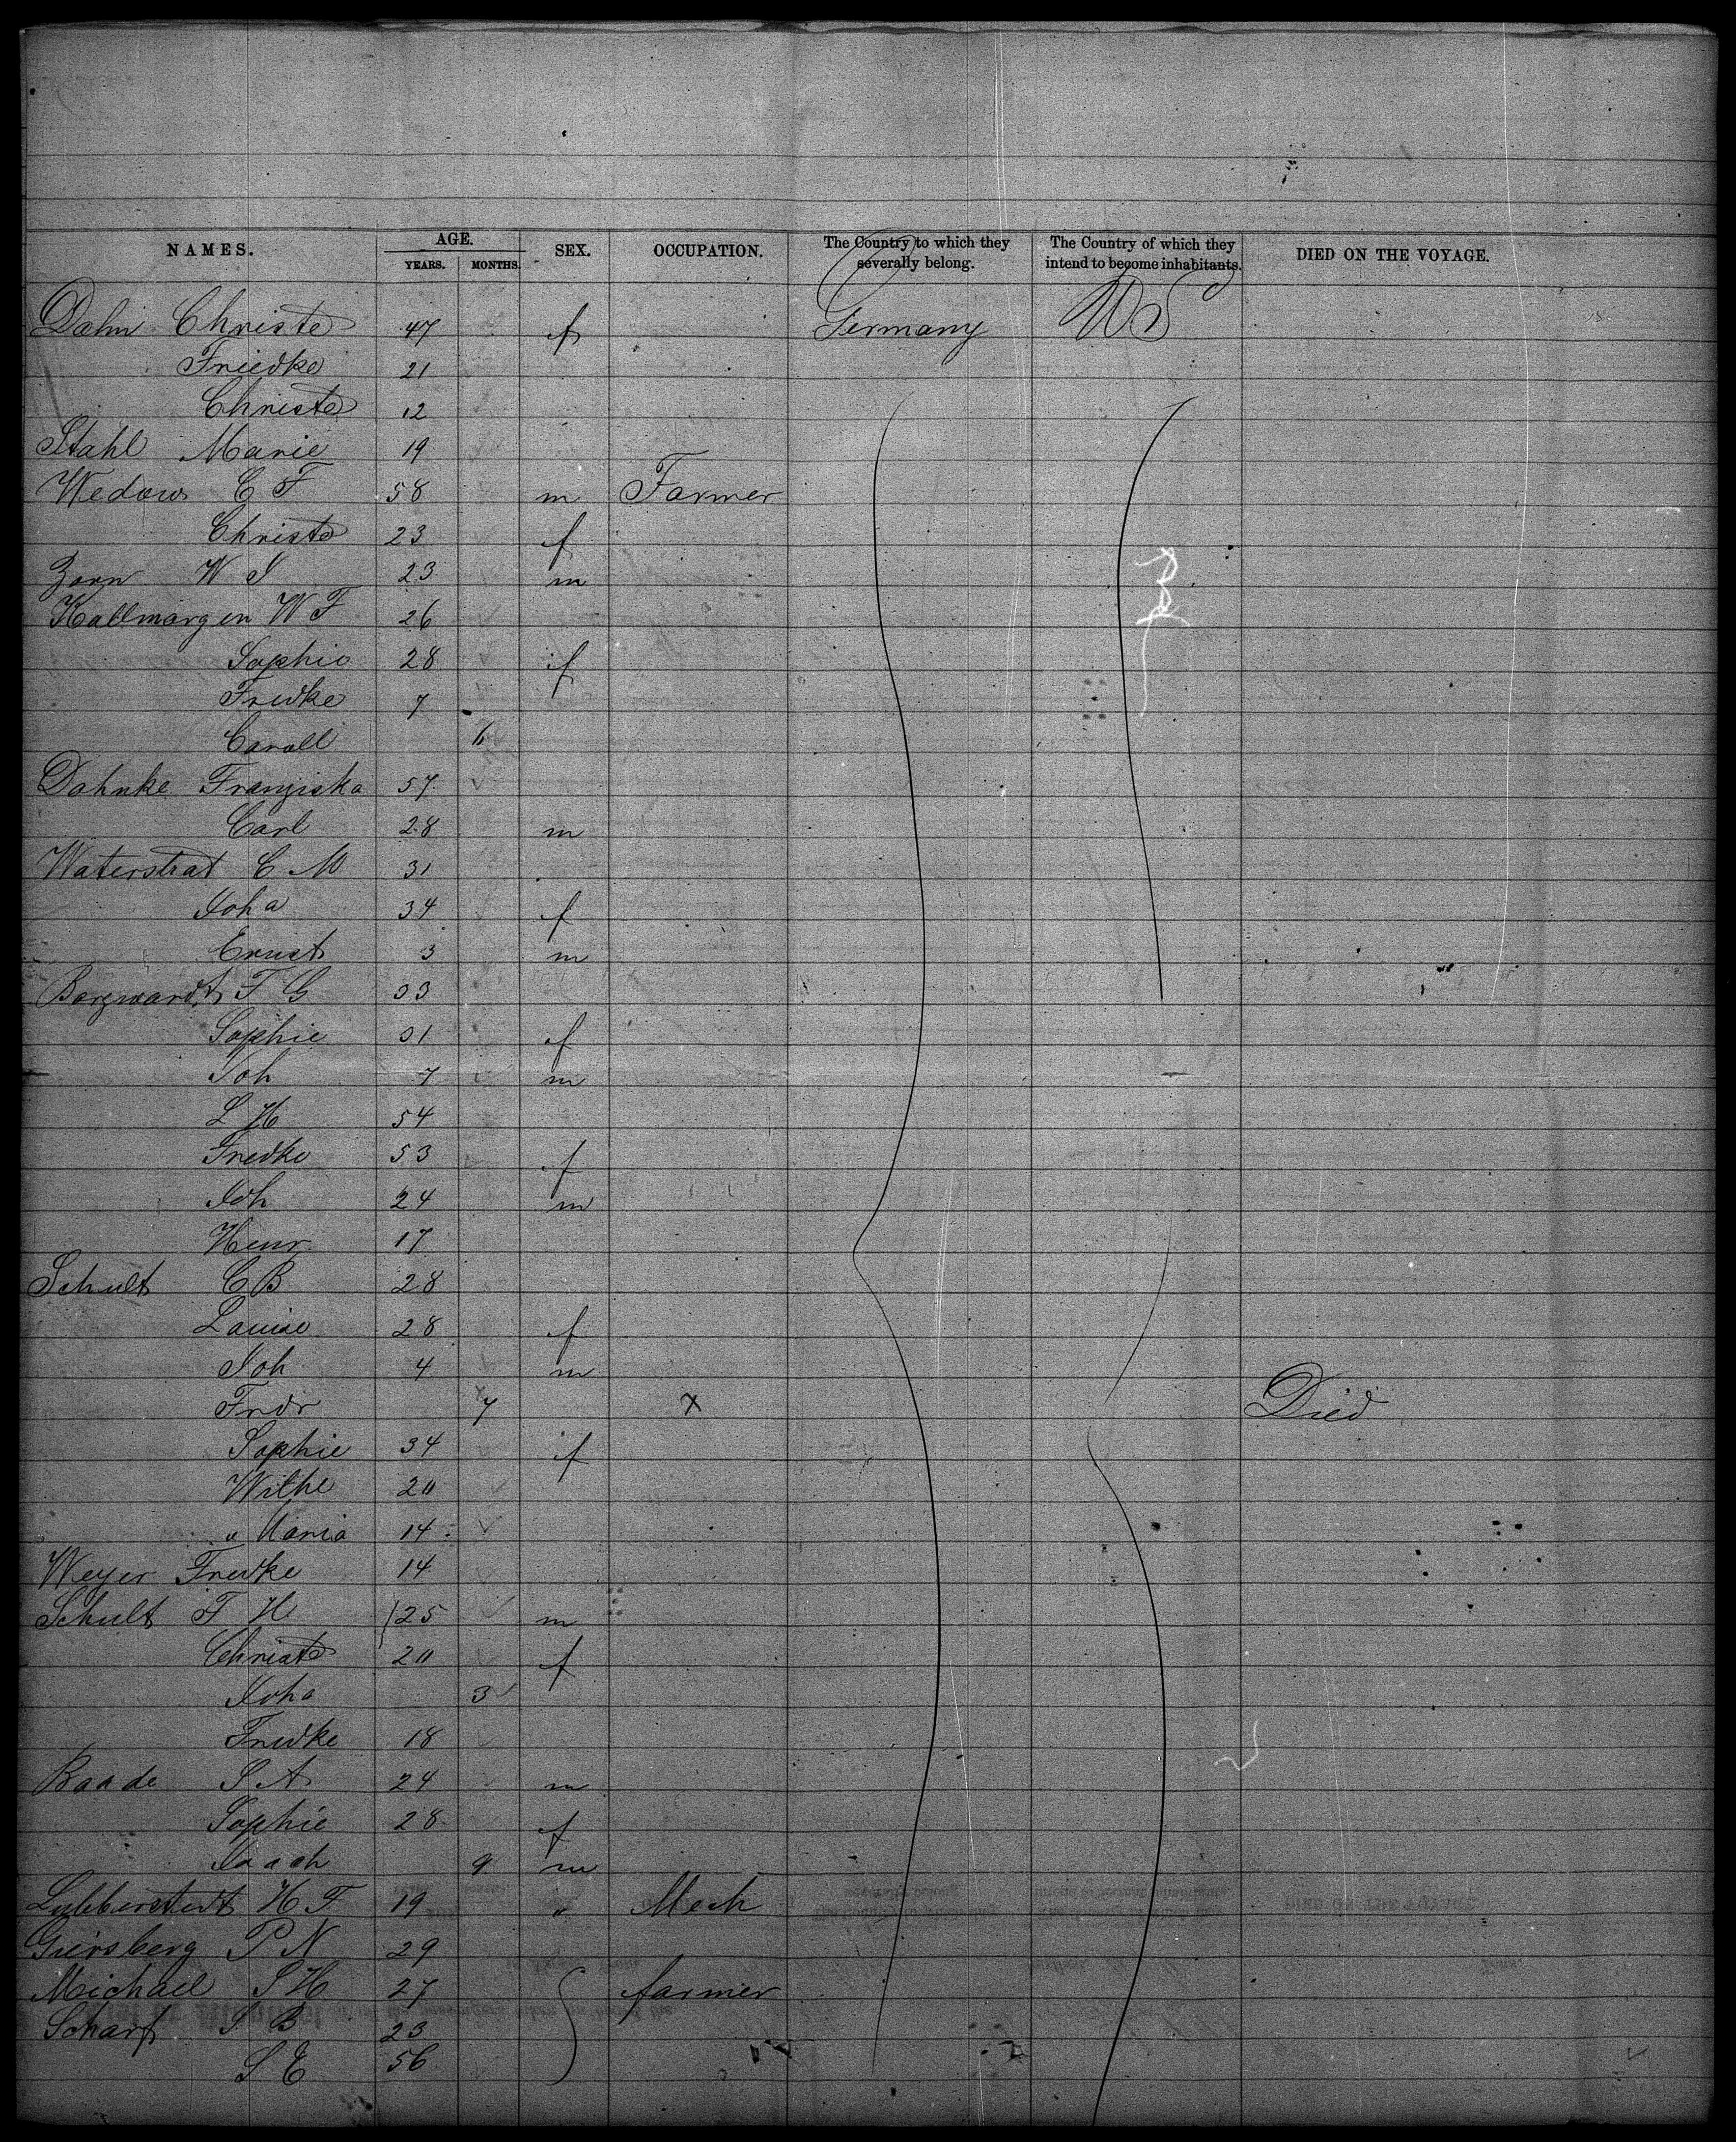 NAMES. AGE. SEX. OCCUPATION. The Country to which they severally belong. The Country of which they intend to become inhabitants. DIED ON THE VOYAGE.
YEARS. MONTHS.
Dahn Christe 47 f Germany US
Friedke 21
Christe 12
Stahl Marie 19
Wedow C F 58 m Farmer
Christe 23 f
Zorn W J 23 m
Kallmorgen W F 26
Sophie 28 f
Fredke 7
Caroll 6
Dahnke Franziska 57
Carl 28 m
Waterstrat C M 31
Joha 34 f
Ernst 3 m
Borgwardt F G 33
Sophie 31 f
Joh 7 m
L H 54
Fredke 53 f
Joh 24 m
Henr 17
Schult C B 28
Louise 28 f
Joh 4 m
Frdr 7 x Died
Sophie 34 f
Wilhe 20
" Maria 14
Weyer Fredke 14
Schult F H 25 m
Christe 20 f
Joha 3
Fredke 18
Baade J A 24 m
Sophie 28 f
Joach 9 m
Lubberstedt H F 19 " Mech
Giersberg P N 29
Michael J H 27 farmer
Scharf J B 23
J E 56